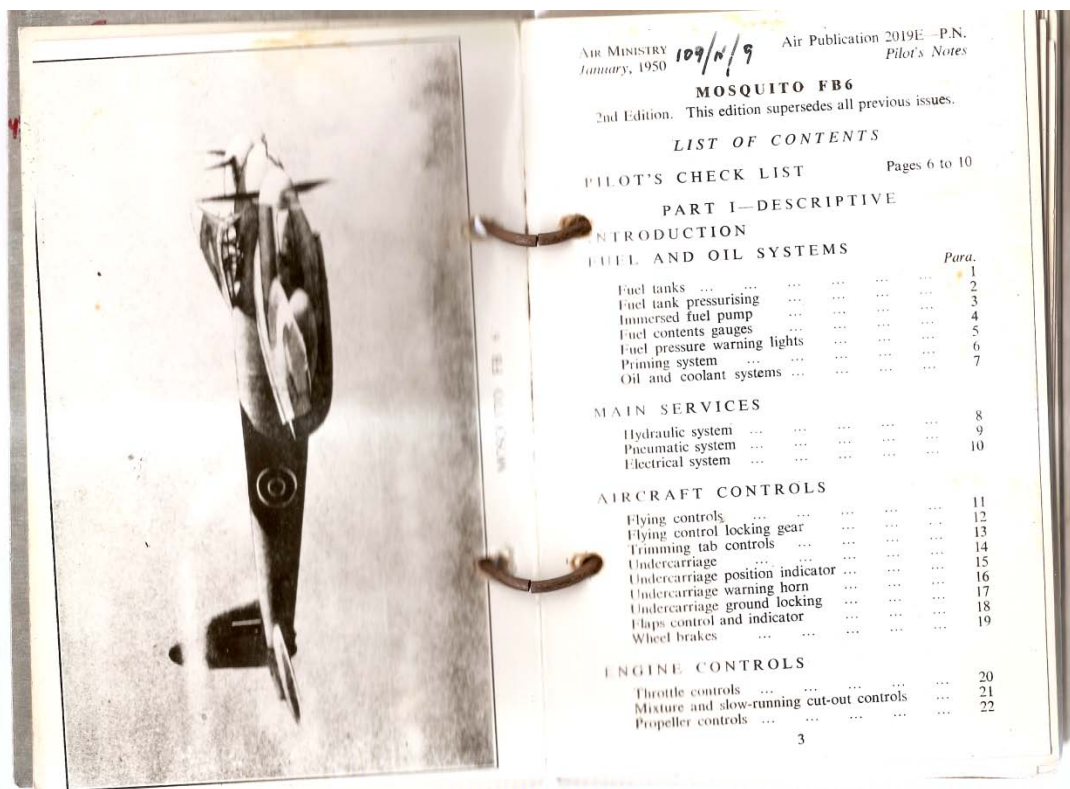 AIR MINISTRY 109/N/9 Air Publication 2019E—P.N.
January, 1950 Pilot's Notes
MOSQUITO FB6
2nd Edition. This edition supersedes all previous issues.
LIST OF CONTENTS
PILOT'S CHECK LIST Pages 6 to 10
PART I—DESCRIPTIVE
INTRODUCTION
FUEL AND OIL SYSTEMS
Para.
Fuel tanks ... ... ... ... ... ... 1
Fuel tank pressurising ... ... ... ... 2
Immersed fuel pump ... ... ... ... 3
Fuel contents gauges ... ... ... ... 4
Fuel pressure warning lights ... ... ... ... 5
Priming system ... ... ... ... ... 6
Oil and coolant systems ... ... ... ... 7
MAIN SERVICES
Hydraulic system ... ... ... ... ... 8
Pneumatic system ... ... ... ... ... 9
Electrical system ... ... ... ... ... 10
AIRCRAFT CONTROLS
Flying controls ... ... ... ... ... 11
Flying control locking gear ... ... ... 12
Trimming tab controls ... ... ... ... 13
Undercarriage ... ... ... ... ... 14
Undercarriage position indicator ... ... ... 15
Undercarriage warning horn ... ... ... 16
Undercarriage ground locking ... ... ... 17
Flaps control and indicator ... ... ... 18
Wheel brakes ... ... ... ... ... 19
ENGINE CONTROLS
Throttle controls ... ... ... ... ... 20
Mixture and slow-running cut-out controls ... 21
Propeller controls ... ... ... ... ... 22
3